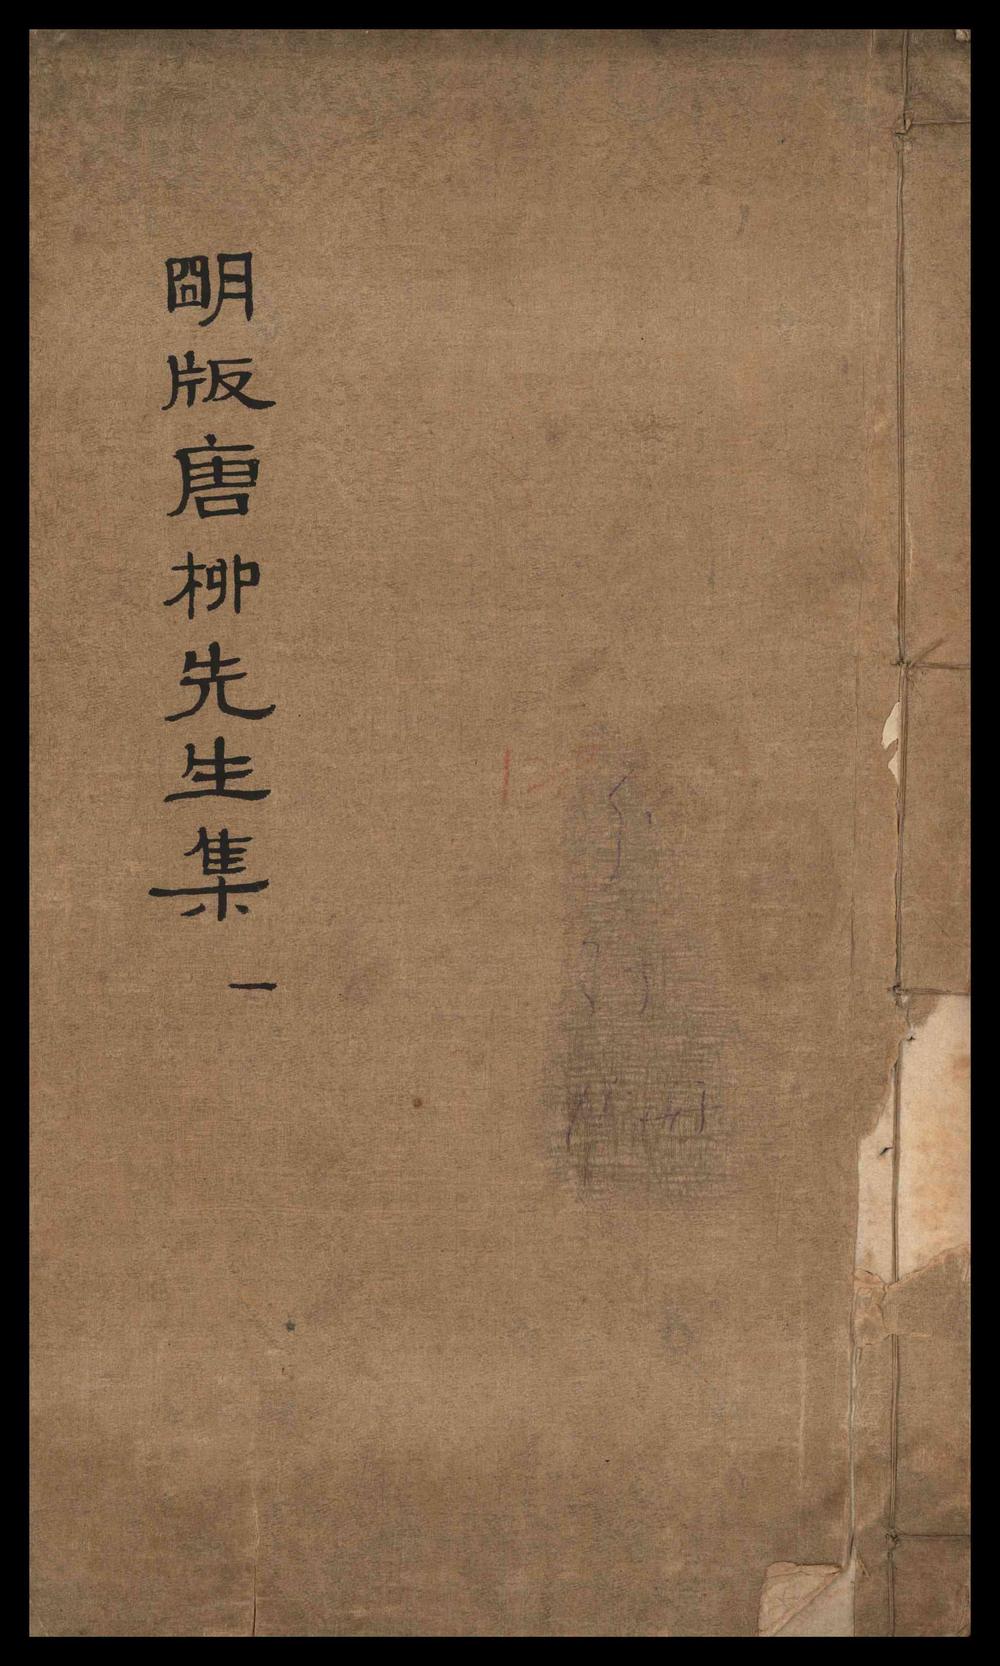 明版唐柳先生集 一